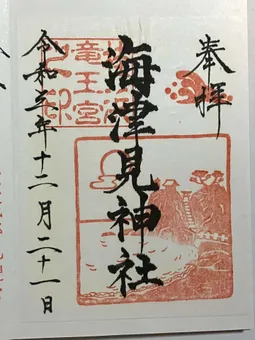 奉拝
海津見神社
竜王宮
之印
令和元年十二月二十一日